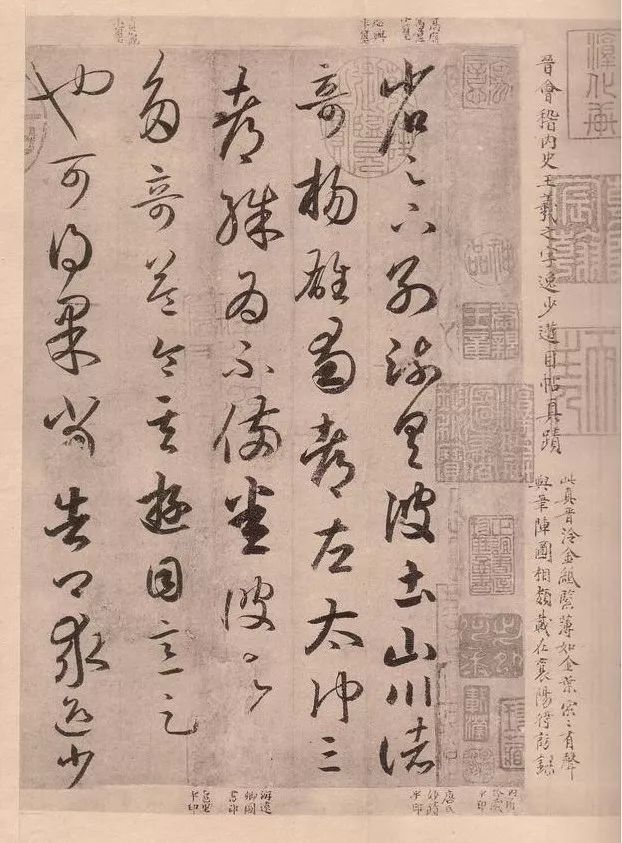 淳化軒
晉會稽內史王羲之字逸少遊目帖真蹟
此真晉冷金紙緊薄如金葉索〻有聲
與筆陣圖相類藏在襄陽
省足下別疏具彼土山川諸
奇楊雄蜀都左太沖三
都殊為不備悉彼故
多奇益令其遊目意足
也可得果當告卿求迎少